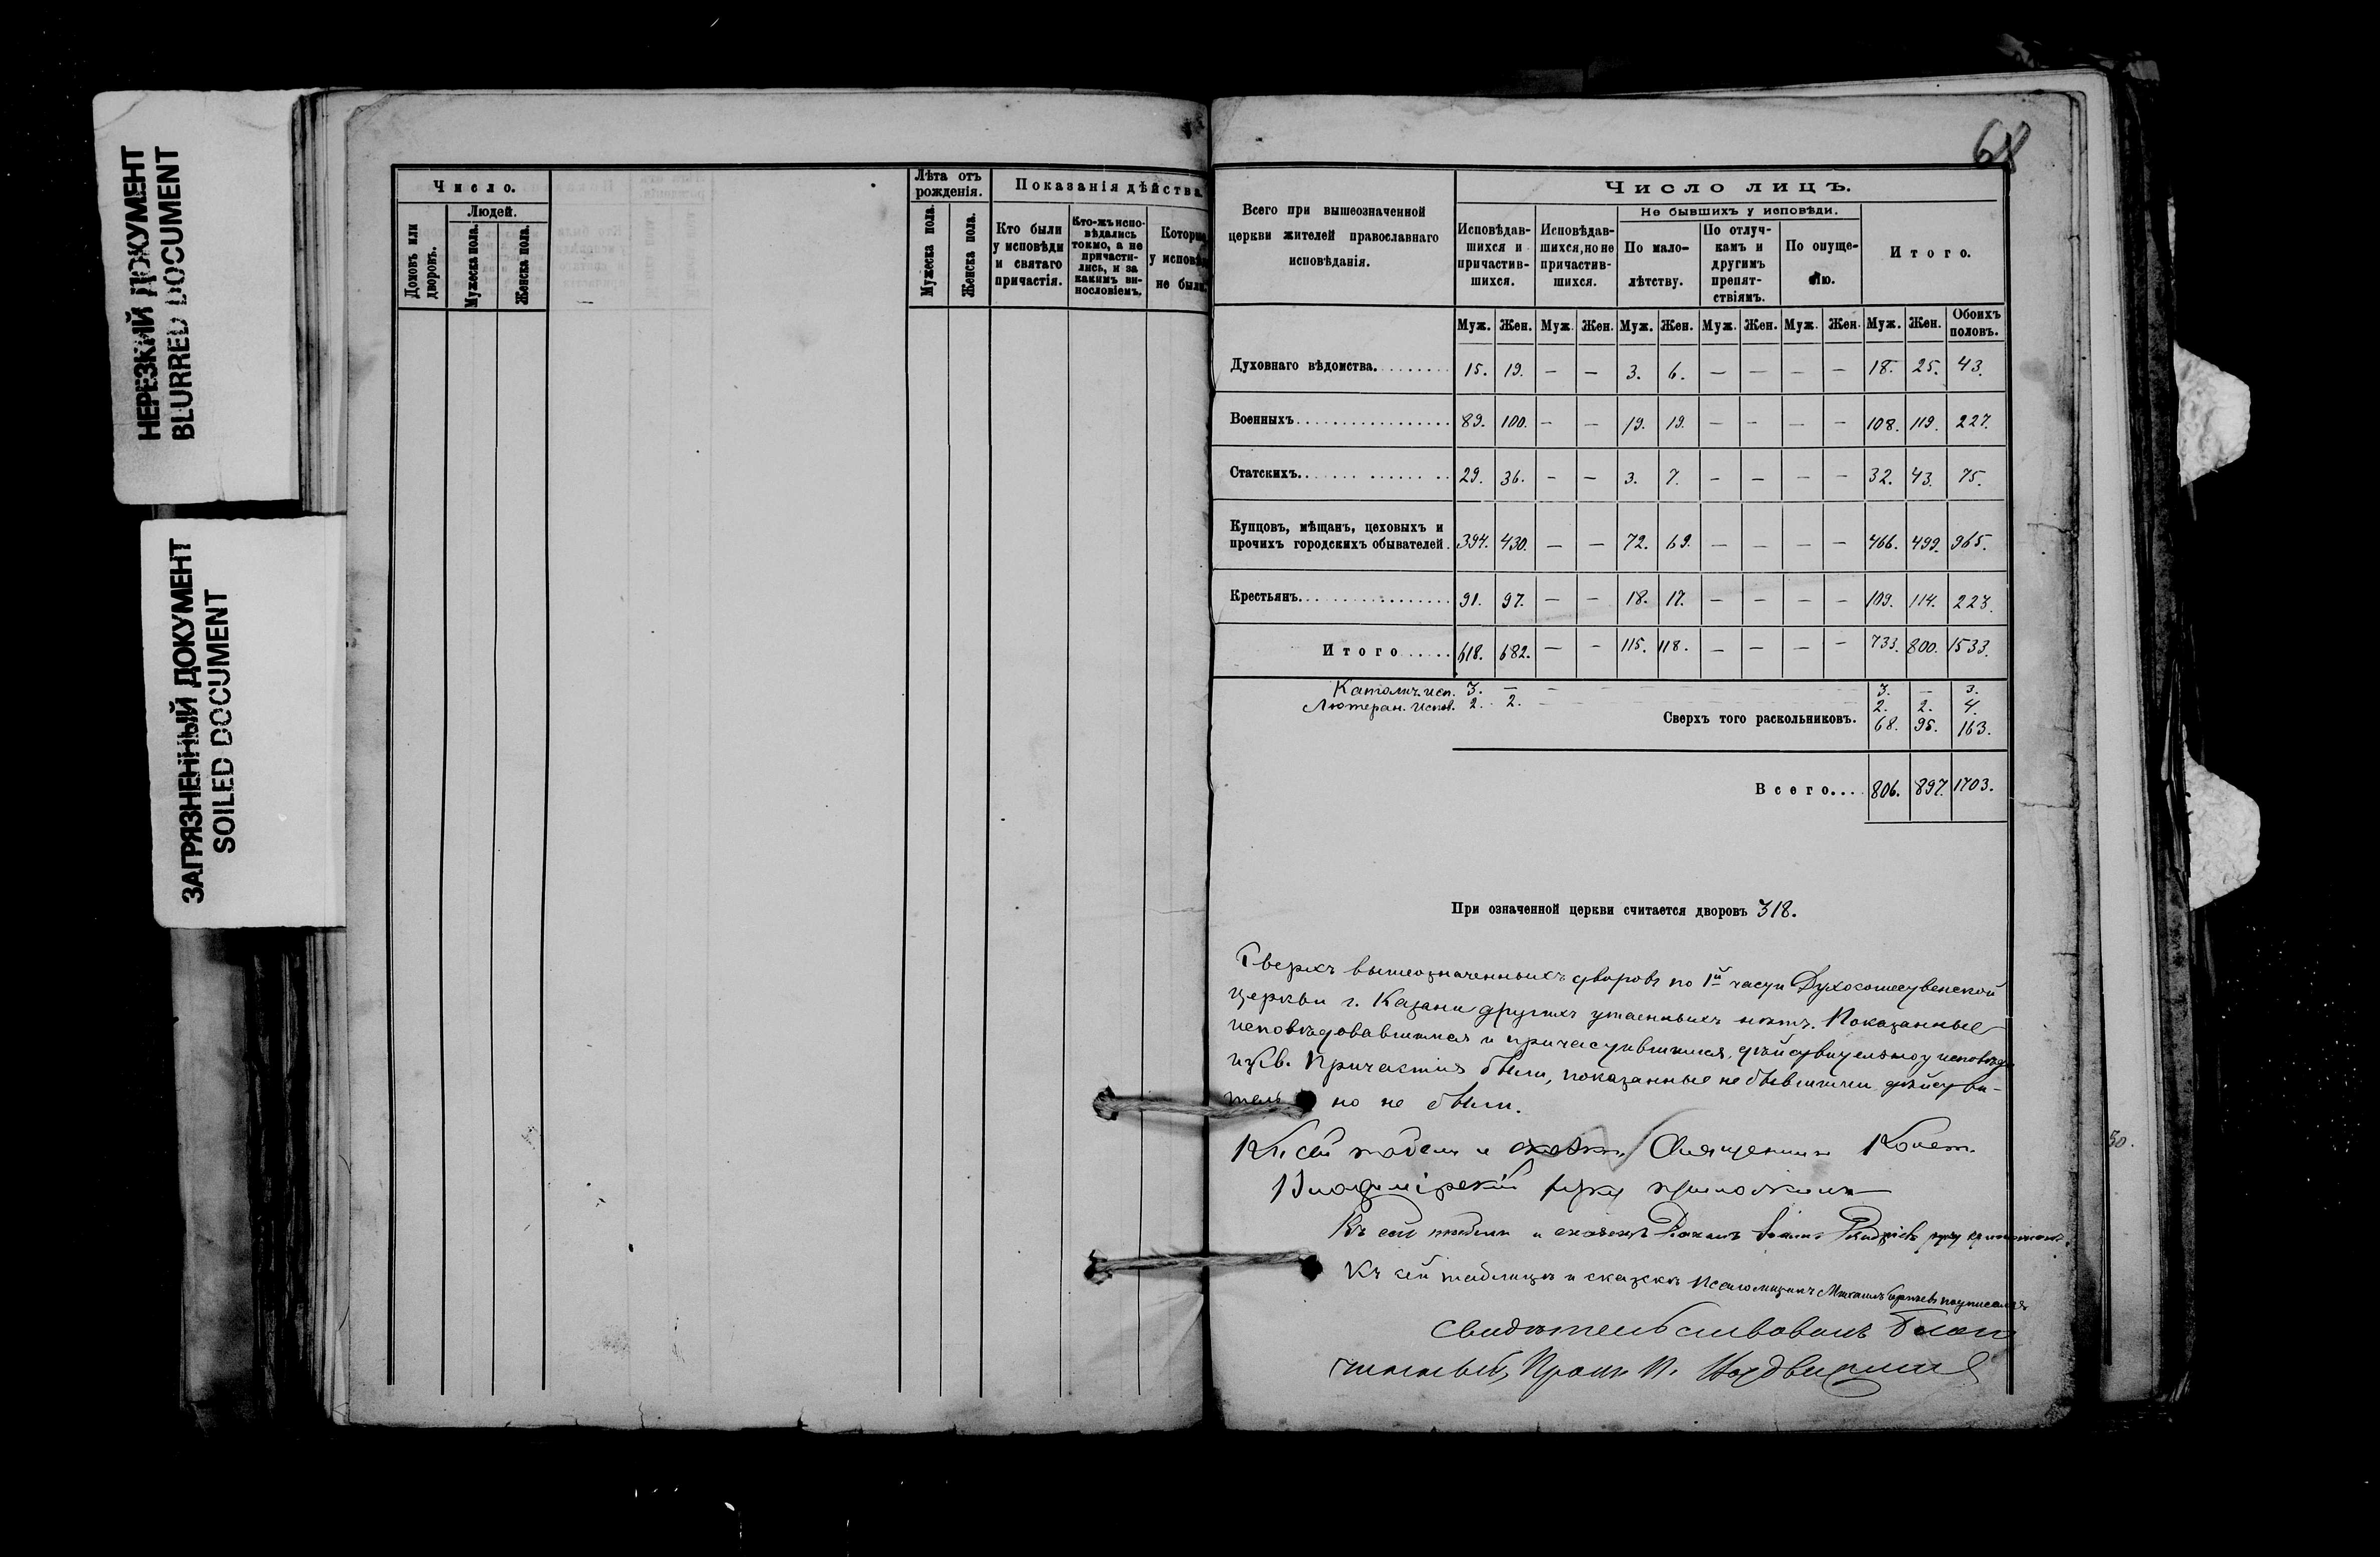 НЕРЕЗКИЙ ДОКУМЕНТ
BLURRED DOCUMENT
ЗАГРЯЗНЕННЫЙ ДОКУМЕНТ
SOILED DOCUMENT
Число.
Домовъ или дворовъ.
Людей.
Мужеска пола.
Женска пола.
Лѣта отъ рожденія.
Мужеска пола.
Женска пола.
Показанія дѣйства.
Кто были у исповѣди и святаго причастія.
Кто-жъ исповѣдались токмо, а не причастились, и за какимъ винословіемъ.
не были.
Всего при вышеозначенной
церкви жителей православнаго
исповѣданія.
Число лицъ.
Исповѣдавшихся и причастившихся.
Исповѣдавшихся, но не причастившихся.
Не бывшихъ у исповѣди.
По малолѣтству.
По отлучкамъ и другимъ препятствіямъ.
По опущенію.
Итого.
Муж. Жен. Муж. Жен. Муж. Жен. Муж. Жен. Муж. Жен. Муж. Жен. Обоихъ половъ.
Духовнаго вѣдомства. 15. 19. — — 3. 6. — — — — 18. 25. 43.
Военныхъ 89. 100. — — 19. 19. — — — — 108. 119. 227.
Статскихъ. 29. 36. — — 3. 7. — — — — 32. 43. 75.
Купцовъ, мѣщанъ, цеховыхъ и
прочихъ городскихъ обывателей. 394. 430. — — 72. 69. — — — — 466. 499. 965.
Крестьянъ. 91. 97. — — 18. 17. — — — — 109. 114. 223.
Итого 618. 682. — — 115. 118. — — — — 733. 800. 1533.
Католич. исп. 3. — 3. — 3.
Лютеран. испов. 2. 2. — 2. 2. 4.
Сверхъ того раскольниковъ. 68. 95. 163.
Всего... 806. 897. 1703.
При означенной церкви считается дворовъ 318.
Сверхъ вышеозначенныхъ дворовъ по 1й части Духосошественской
церкви г. Казани другихъ утаенныхъ нѣтъ. Показанные
исповѣдовавшимися и причастившимися, дѣйствительно у исповѣди
и Св. Причастія были, показанные не бывшими дѣйстви-
тельно не были.
Къ сей табели и Священникъ Конст.
Владимірскій руку приложилъ
Къ сей табели и Діаконъ руку приложилъ.
Къ сей таблицѣ и сказкѣ Псаломщикъ Михаилъ подписался
Свидѣтельствовалъ Благо-
чинный, Прот. П.